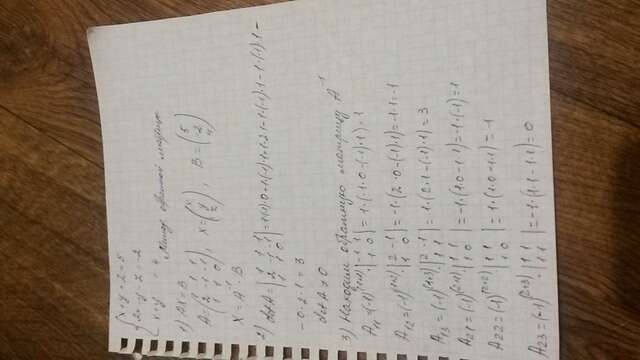 x+y+z=5
2x-y-z=-2
x+y =4
Метод обратной матрицы
1) AX=B
A=(1 1 1
2 -1 -1
1 1 0), X=(x
y
z), B=(5
-2
4)
X=A⁻¹·B
-0-2·1=3
det A≠0
3) Находим обратную матрицу A⁻¹
A₁₁=(-1)⁽¹⁺¹⁾·|-1 -1
1 0|=1·(-1·0-(-1)·1)=1
A₁₂=(-1)⁽¹⁺²⁾·|2 -1
1 0|=-1·(2·0-(-1)·1)=-1·1=-1
A₁₃=(-1)⁽¹⁺³⁾·|2 -1
1 1|=1·(2·1-(-1)·1)=3
A₂₁=(-1)⁽²⁺¹⁾·|1 1
1 0|=-1·(1·0-1·1)=-1·(-1)=1
A22=(-1)⁽²⁺²⁾·|1 1
1 0|=1·(1·0-1·1)=-1
A23=(-1)⁽²⁺³⁾·|1 1
1 1|=-1·(1·1-1·1)=0